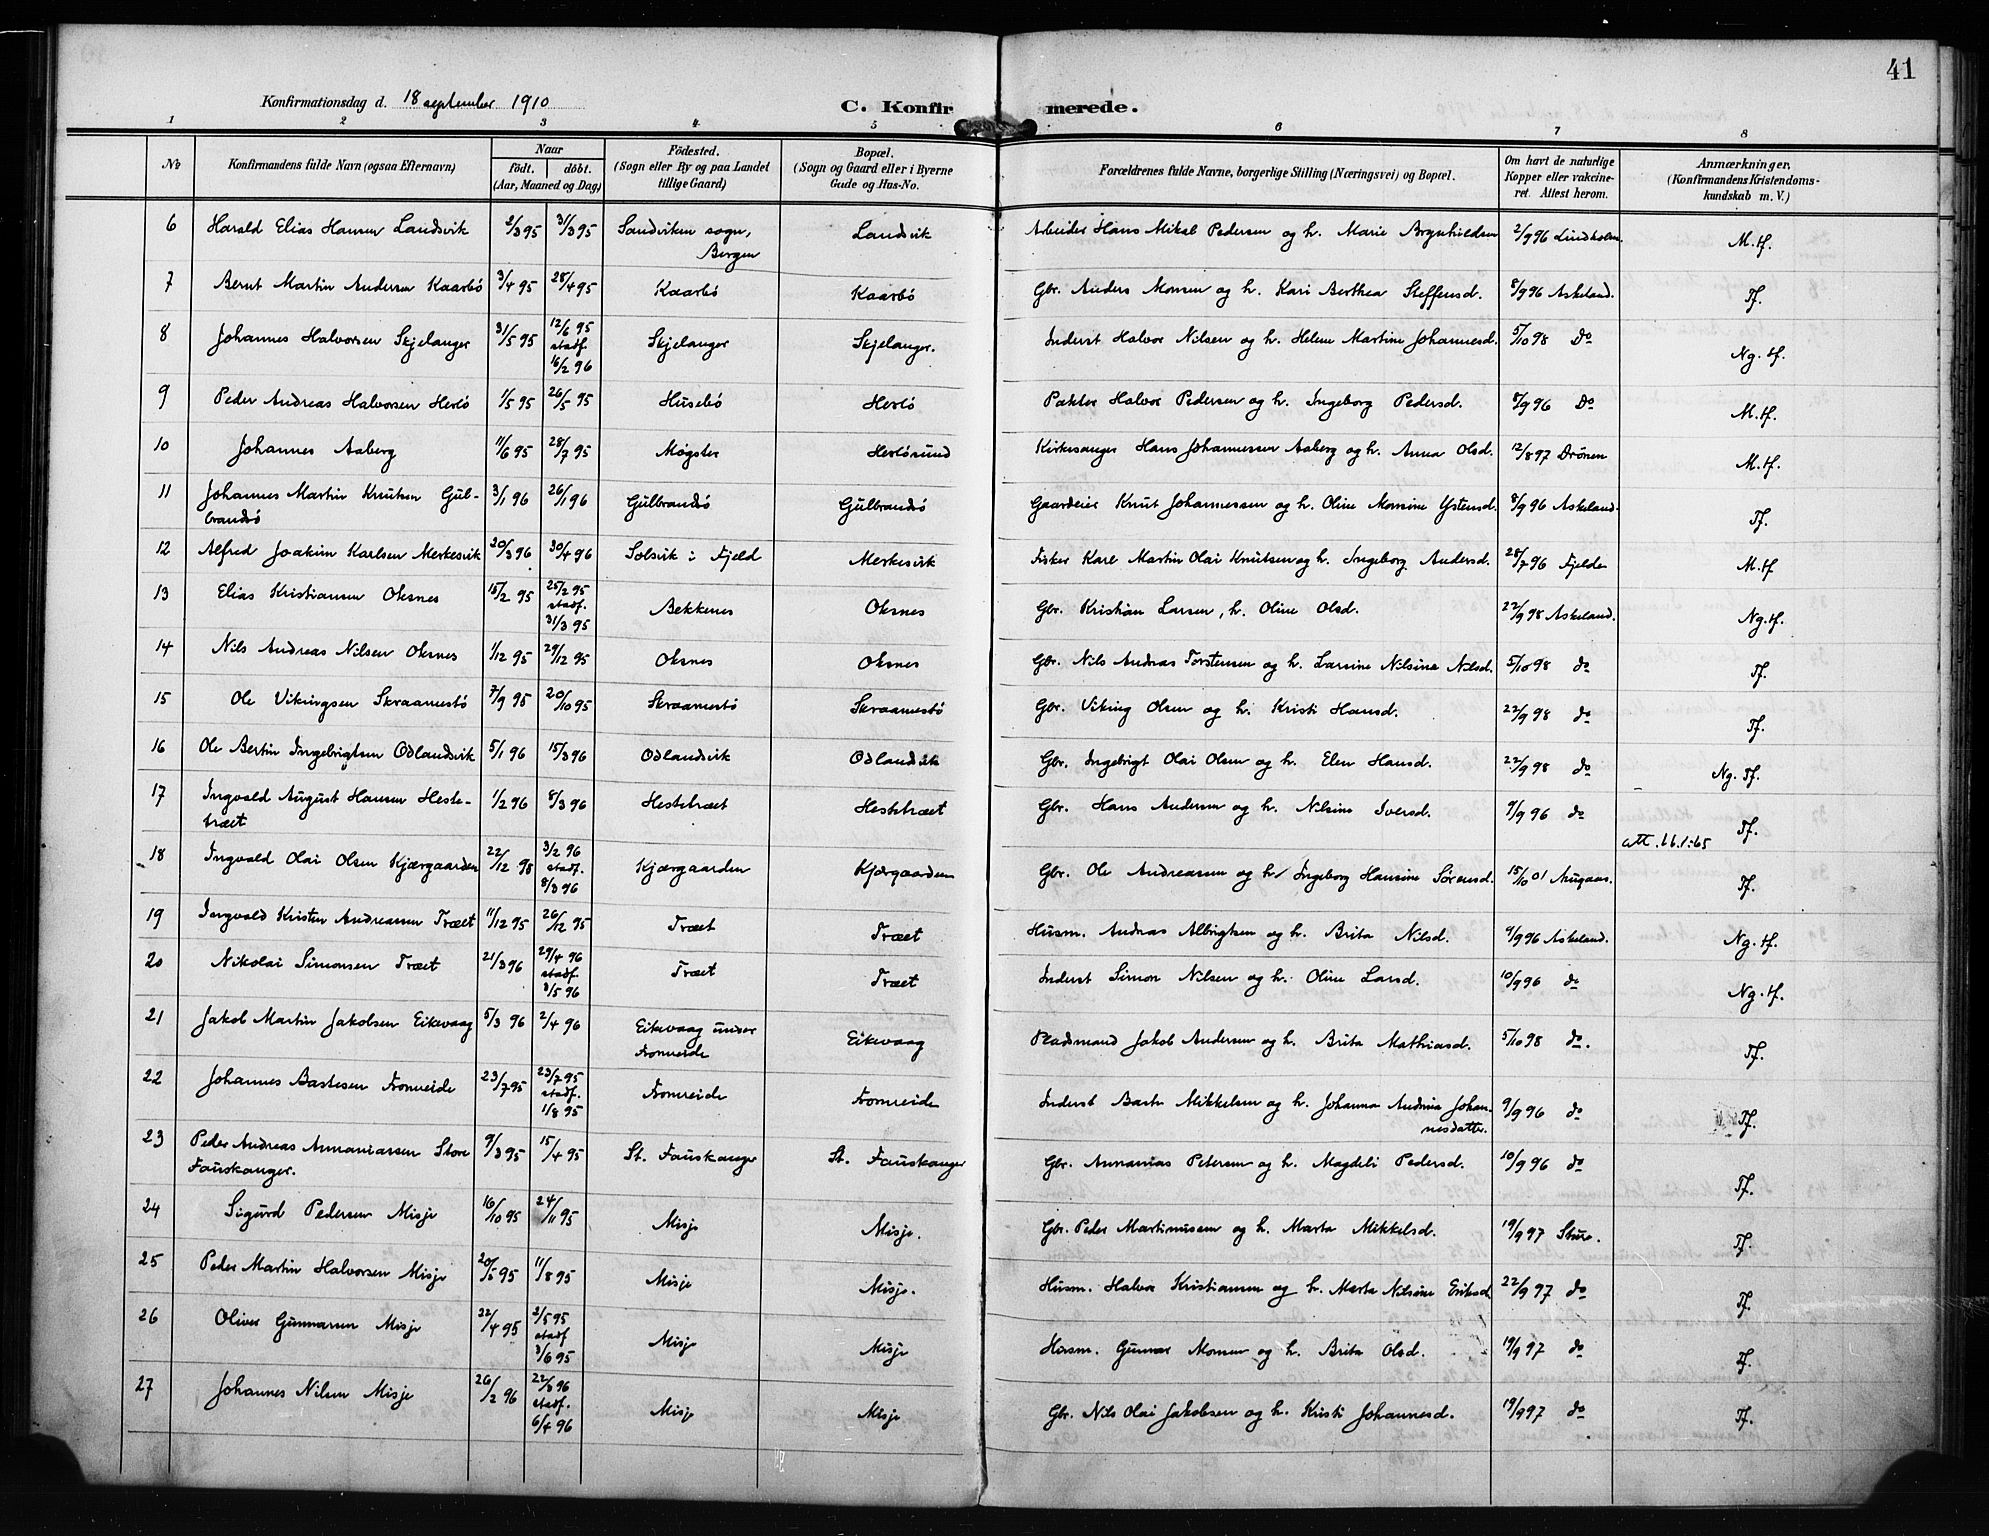 41
Konfirmationsdag d. 18 september 1910
C. Konfirmerede.
1 2 3 4 5 6 7 8
No Konfirmandens fulde Navn (ogsaa Efternavn) Naar Födested. Bopæl. Forældrenes fulde Navne, borgerlige Stilling (Næringsvei) og Bopæl. Om havt de naturlige Anmærkninger.
födt. döbt. (Sogn eller By og paa Landet (Sogn og Gaard eller i Byerne Kopper eller vakcine- (Konfirmandens Kristendoms-
(Aar, Maaned og Dag) tillige Gaard) Gade og Hus-No. ret. Attest herom. kundskab m. V.)
6 Harald Elias Hansen Landsvik 2/3 95 31/3 95 Sandviken sogn, Landsvik Arbeider Hans Mikal Pedersen og h. Marie Brynhildsen 2/9 96 Lindholm. M.tf.
Bergen
7 Bernt Martin Andersen Kaarbö 3/4 95 28/4 95 Kaarbö Kaarbö Gbr. Anders Monsen og h. Kari Berthea Steffensd. 8/9 96 Askeland. Tf.
8 Johannes Halvorsen Skjelanger 31/5 95 12/6 95 Skjelanger Skjelanger. Inderst Halvor Nilsen og h. Helene Martine Johannesd. 5/10 98 Do Ng. tf.
stadf.
16/2 96
9 Peder Andreas Halvorsen Herlö 1/5 95 26/5 95 Husebö Herlö Pakter Halvor Pedersen og h. Ingeborg Pedersd. 8/9 96 Do M.tf.
10 Johannes Aaberg 11/6 95 28/7 95 Møgster Herlösund Kirkesanger Hans Johannessen Aaberg og h. Anna Olsd. 12/8 97 Drönen M.tf.
11 Johannes Martin Knutsen Gul- 3/1 96 26/1 96 Gulbrandsö Gulbrandsö Gaardeier Knut Johannessen og h. Oline Monsine Ystensd. 8/9 96 Askeland. Tf.
brandsö
12 Alfred Joakim Karlsen Merkesvik 20/3 96 30/4 96 Solsvik i Fjeld Merkesvik Fisker Karl Martin Olai Knutsen og h. Ingeborg Andersd. 28/7 96 Fjelde M.tf
13 Elias Kristiansen Oksnes 15/2 95 25/2 95 Bekkenes Oksnes Gbr. Kristian Larsen, h. Oline Olsd. 22/9 98 Askeland. Ng. tf.
stadf.
31/3 95
14 Nils Andreas Nilsen Oksnes 1/12 95 29/12 95 Oksnes Oksnes Gbr. Nils Andreas Torstensen og h. Larsine Nilsine Nilsd. 5/10 98 do Tf.
15 Ole Vikingsen Skraamestö 7/9 95 20/10 95 Skraamestö Skraamestö Gbr. Viking Olsen og h. Kristi Hansd. 22/9 98 do Tf.
16 Ole Bertin Ingebrigtsen Odlandsvik 5/1 96 15/3 96 Odlandsvik Odlandsvik Gbr. Ingebrigt Olai Olsen og h. Elen Hansd. 22/9 98 do Ng. Tf.
17 Ingvald August Hansen Heste- 1/2 96 8/3 96 Hestetræet Hestetræet Gbr. Hans Andersen og h. Nilsine Iversd. 9/9 96 do Tf.
træet
att. 26.1.65
18 Ingvald Olai Olsen Kjærgaarden 22/12 95 3/2 96 Kjærgaarden Kjærgaarden Gbr. Ole Andreassen og h. Ingeborg Hansine Sörensd. 15/10 01 Tf.
stadf.
8/3 96
19 Ingvald Kristen Andreassen Træet 11/12 95 26/12 95 Træet Træet Husm. Andreas Albrigtsen og h. Brita Nilsd. 9/9 96 Askeland. Ng. tf.
20 Nikolai Simonsen Træet 21/3 96 29/4 96 Træet Træet Inderst Simon Nilsen og h. Oline Larsd. 10/9 96 do Ng. tf.
stadf.
3/5 96
21 Jakob Martin Jakobsen Eikevaag 5/3 96 2/4 96 Eikevaag under Eikevaag Pladsmand Jakob Andersen og h. Brita Mathiasd. 5/10 98 do. Tf.
Fromreide
22 Johannes Bastesen Fromreide 23/7 95 23/7 95 Fromreide Fromreide Inderst Baste Mikkelsen og h. Johanna Andrea Johan- 9/9 96 do Tf.
stadf. nesdatter.
11/8 95
23 Peder Andreas Annaniassen Store 9/3 95 15/4 95 St. Fauskanger St. Fauskanger Gbr. Annanias Petersen og h. Magdeli Pedersd. 10/9 96 do Tf.
Fauskanger.
24 Sigurd Pedersen Misje 16/10 95 24/11 95 Misje Misje. Gbr. Peder Martinussen og h. Marta Mikkelsd. 19/9 97 Sture. Tf.
25 Peder Martin Halvorsen Misje 20/5 95 11/8 95 Misje Misje. Husm. Halvor Kristiansen og h. Marta Nilsine Eriksd. 22/9 97 do Tf.
26 Oliver Gunnarsen Misje 22/4 95 2/5 95 Misje Misje Husm. Gunnar Monsen og h. Brita Olsd. 19/9 97 do Tf.
stadf
3/6 95
27 Johannes Nilsen Misje 26/2 96 22/3 96 Misje Misje Gbr. Nils Olai Jakobsen og h. Kristi Johannesd. 19/9 97 do Tf.
stadf.
6/4 96